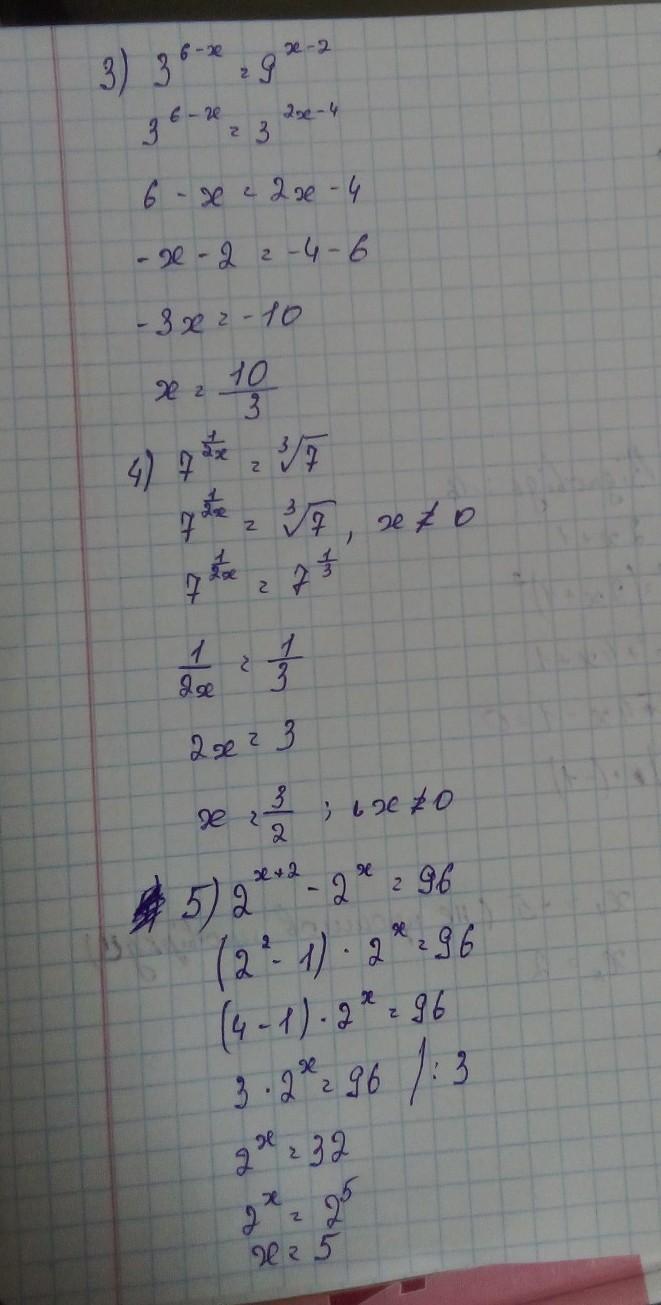 3) 3^{6-x} = 9^{x-2}
3^{6-x} = 3^{2x-4}
6 - x = 2x - 4
-x - 2 = -4 - 6
-3x = -10
x = 10/3
4) 7^{1/2x} = ∛7
7^{1/2x} = ∛7, x ≠ 0
7^{1/2x} = 7^{1/3}
1/2x = 1/3
2x = 3
x = 3/2 ; x ≠ 0
5) 2^{x+2} - 2^x = 96
(2^2 - 1) · 2^x = 96
(4 - 1) · 2^x = 96
3 · 2^x = 96 / : 3
2^x = 32
2^x = 2^5
x = 5